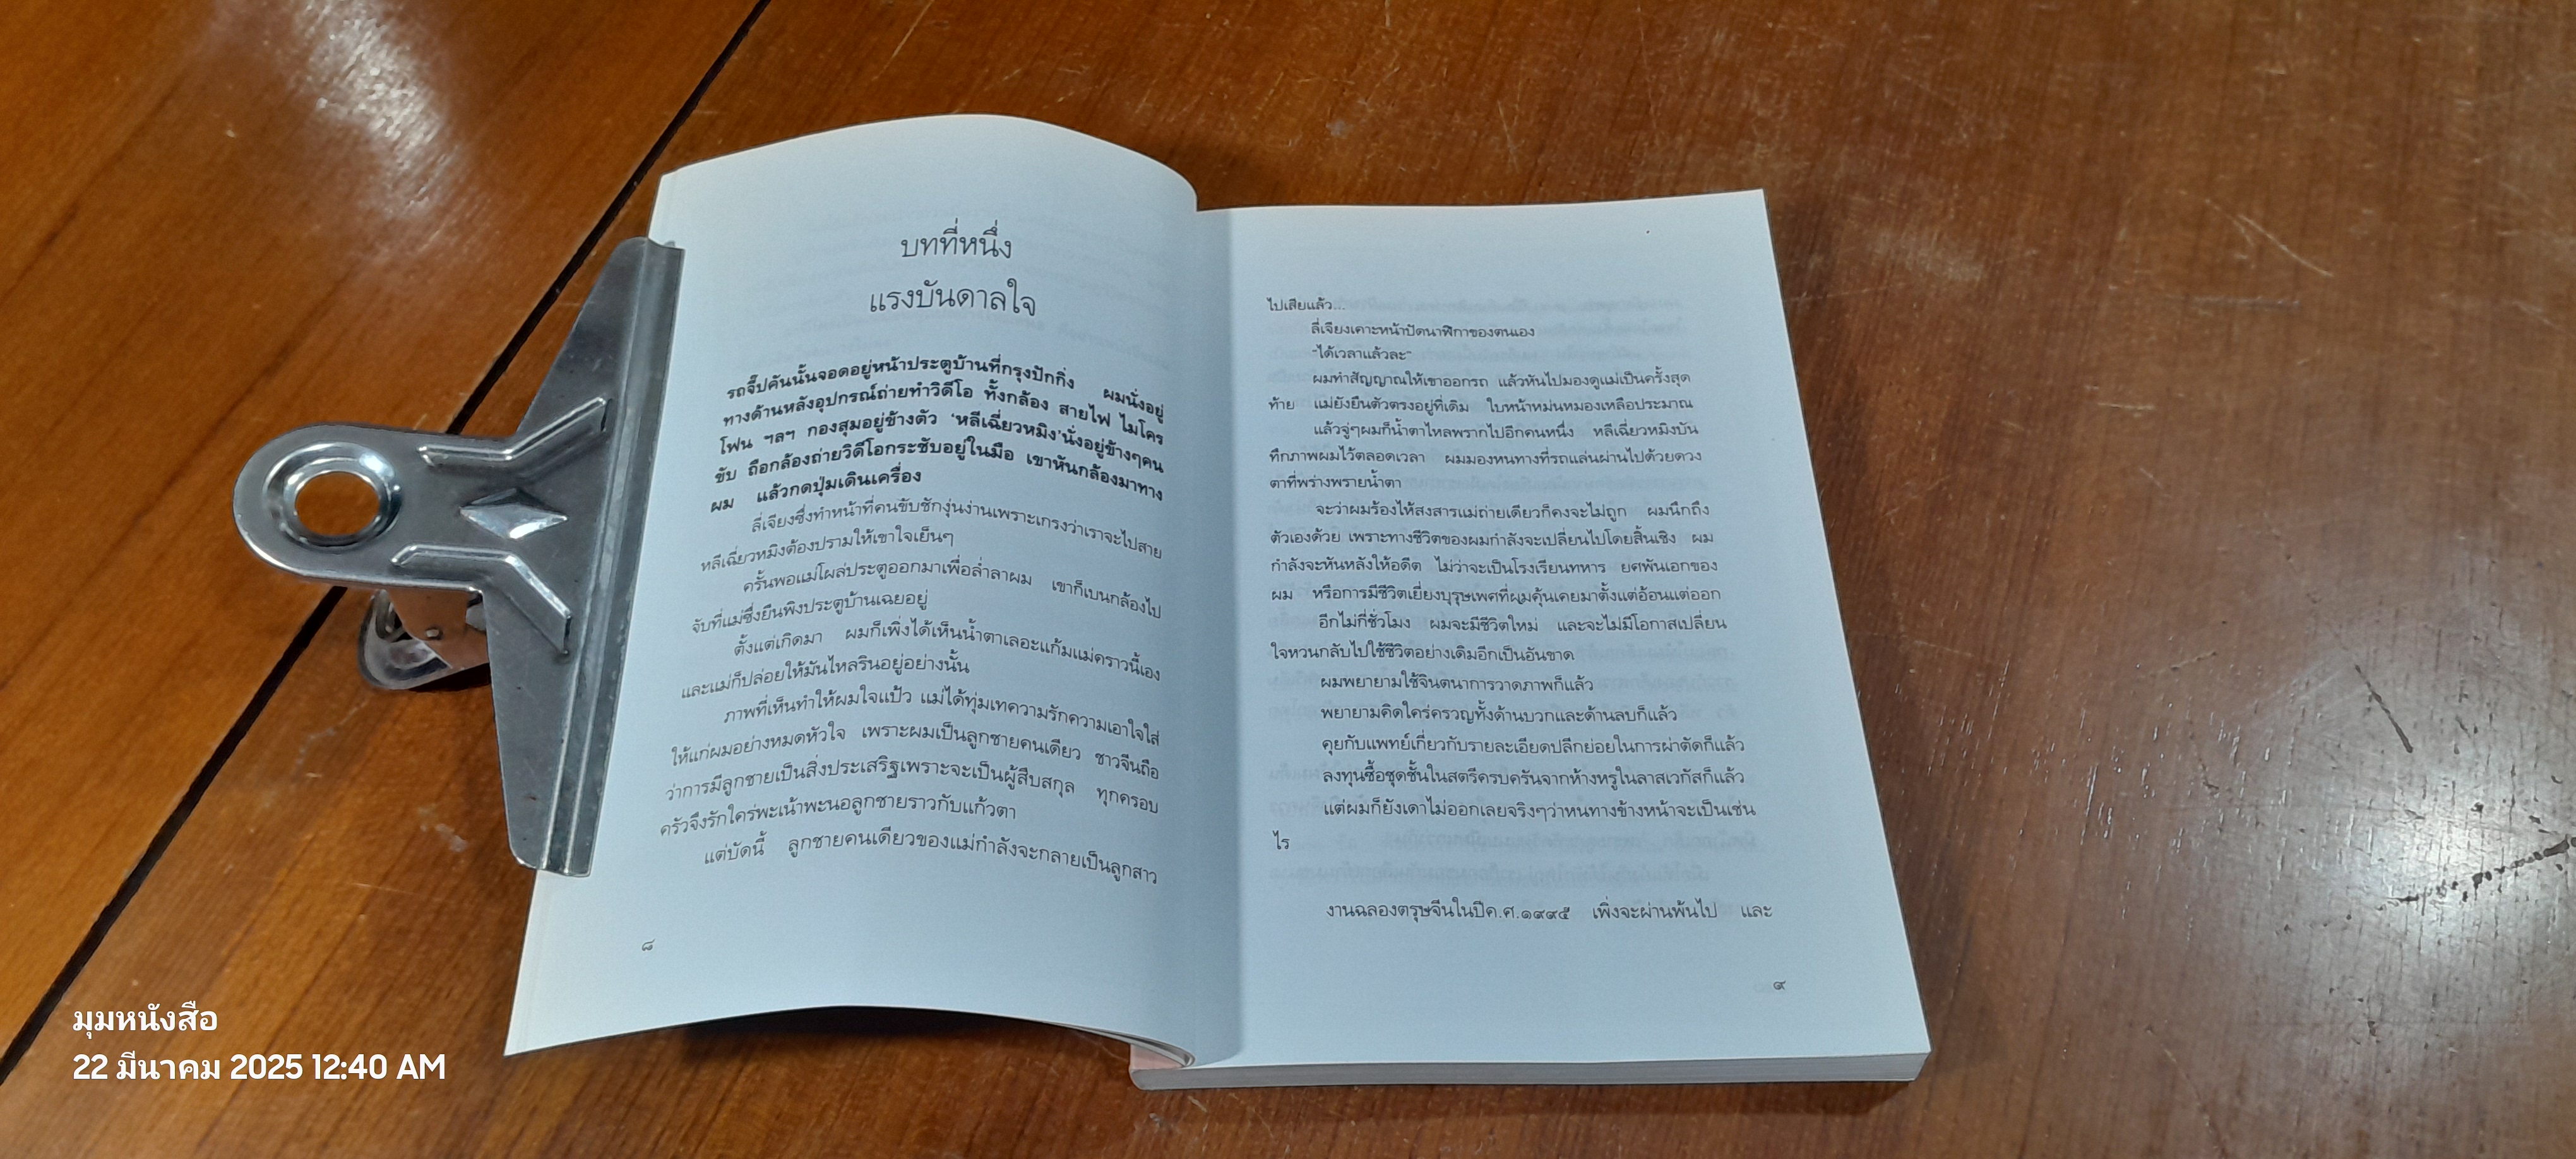 บทที่หนึ่ง
แรงบันดาลใจ
รถจี๊ปคันนั้นจอดอยู่หน้าประตูบ้านที่กรุงปักกิ่ง ผมนั่งอยู่
ทางด้านหลังอุปกรณ์ถ่ายทำวิดีโอ ทั้งกล้อง สายไฟ ไมโคร
โฟน ฯลฯ กองสุมอยู่ข้างตัว 'หลีเฉี่ยวหมิง'นั่งอยู่ข้างๆคน
ขับ ถือกล้องถ่ายวิดีโอกระชับอยู่ในมือ เขาหันกล้องมาทาง
ผม แล้วกดปุ่มเดินเครื่อง
ลี่เจียงซึ่งทำหน้าที่คนขับชักงุ่นง่านเพราะเกรงว่าเราจะไปสาย
หลีเฉี่ยวหมิงต้องปรามให้เขาใจเย็นๆ
ครั้นพอแม่โผล่ประตูออกมาเพื่อล่ำลาผม เขาก็เบนกล้องไป
จับที่แม่ซึ่งยืนพิงประตูบ้านเฉยอยู่
ตั้งแต่เกิดมา ผมก็เพิ่งได้เห็นน้ำตาเลอะแก้มแม่คราวนี้เอง
และแม่ก็ปล่อยให้มันไหลรินอยู่อย่างนั้น
ภาพที่เห็นทำให้ผมใจแป้ว แม่ได้ทุ่มเทความรักความเอาใจใส่
ให้แก่ผมอย่างหมดหัวใจ เพราะผมเป็นลูกชายคนเดียว ชาวจีนถือ
ว่าการมีลูกชายเป็นสิ่งประเสริฐเพราะจะเป็นผู้สืบสกุล ทุกครอบ
ครัวจึงรักใคร่พะเน้าพะนอลูกชายราวกับแก้วตา
แต่บัดนี้ ลูกชายคนเดียวของแม่กำลังจะกลายเป็นลูกสาว
๘
ไปเสียแล้ว...
ลี่เจียงเคาะหน้าปัดนาฬิกาของตนเอง
"ได้เวลาแล้วละ"
ผมทำสัญญาณให้เขาออกรถ แล้วหันไปมองดูแม่เป็นครั้งสุด
ท้าย แม่ยังยืนตัวตรงอยู่ที่เดิม ใบหน้าหม่นหมองเหลือประมาณ
แล้วจู่ๆผมก็น้ำตาไหลพรากไปอีกคนหนึ่ง หลีเฉี่ยวหมิงบัน
ทึกภาพผมไว้ตลอดเวลา ผมมองหนทางที่รถแล่นผ่านไปด้วยดวง
ตาที่พร่างพรายน้ำตา
จะว่าผมร้องไห้สงสารแม่ถ่ายเดียวก็คงจะไม่ถูก ผมนึกถึง
ตัวเองด้วย เพราะทางชีวิตของผมกำลังจะเปลี่ยนไปโดยสิ้นเชิง ผม
กำลังจะหันหลังให้อดีต ไม่ว่าจะเป็นโรงเรียนทหาร ยศพันเอกของ
ผม หรือการมีชีวิตเยี่ยงบุรุษเพศที่ผมคุ้นเคยมาตั้งแต่อ้อนแต่ออก
อีกไม่กี่ชั่วโมง ผมจะมีชีวิตใหม่ และจะไม่มีโอกาสเปลี่ยน
ใจหวนกลับไปใช้ชีวิตอย่างเดิมอีกเป็นอันขาด
ผมพยายามใช้จินตนาการวาดภาพก็แล้ว
พยายามคิดใคร่ครวญทั้งด้านบวกและด้านลบก็แล้ว
คุยกับแพทย์เกี่ยวกับรายละเอียดปลีกย่อยในการผ่าตัดก็แล้ว
ลงทุนซื้อชุดชั้นในสตรีครบครันจากห้างหรูในลาสเวกัสก็แล้ว
แต่ผมก็ยังเดาไม่ออกเลยจริงๆว่าหนทางข้างหน้าจะเป็นเช่น
ไร
งานฉลองตรุษจีนในปีค.ศ.๑๙๙๕ เพิ่งจะผ่านพ้นไป และ
๙
มุมหนังสือ
22 มีนาคม 2025 12:40 AM